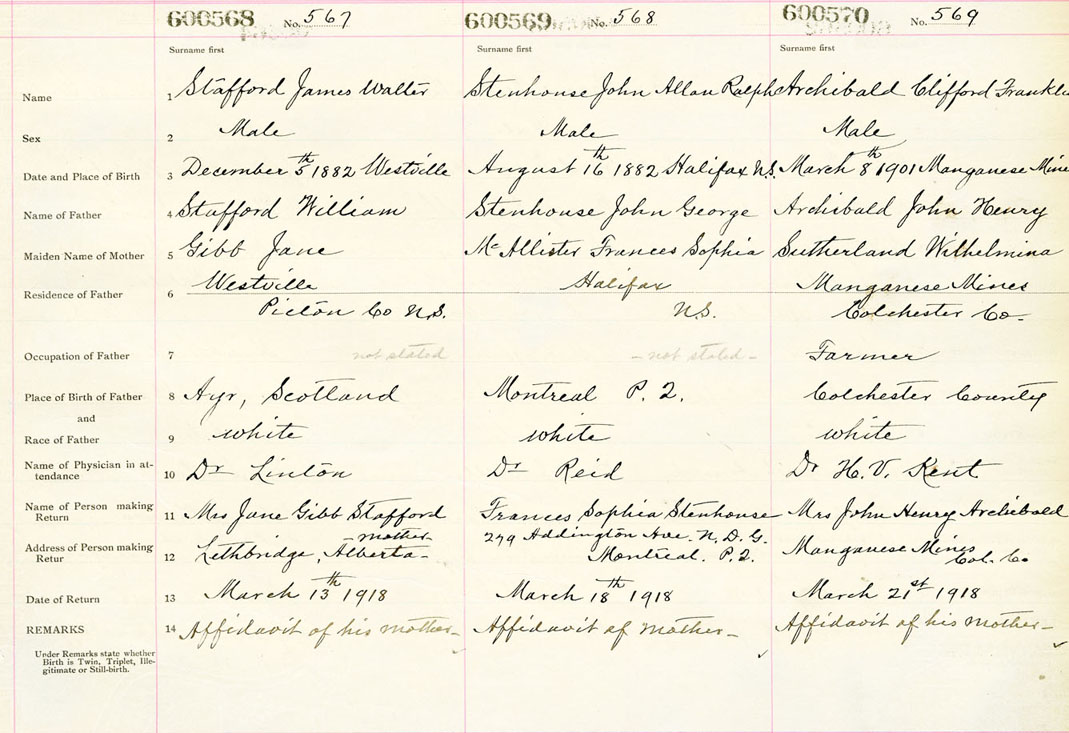 600568 No. 567 600569 No. 568 600570 No. 569
Surname first Surname first Surname first
Name 1 Stafford James Walter Stenhouse John Allan Ralph Archibald Clifford Frankli
Sex 2 Male Male Male
Date and Place of Birth 3 December 5th 1882 Westville August 16th 1882 Halifax N.S. March 8th 1901 Manganese Mine
Name of Father 4 Stafford William Stenhouse John George Archibald John Henry
Maiden Name of Mother 5 Gibb Jane McAllister Frances Sophia Sutherland Wilhelmina
Residence of Father 6 Westville Halifax Manganese Mines
Pictou Co N.S. N.S. Colchester Co-
Occupation of Father 7 not stated - not stated - Farmer
Place of Birth of Father 8 Ayr, Scotland Montreal P.Q. Colchester County
and
Race of Father 9 white white white
Name of Physician in at-
tendance 10 Dr Linton Dr Reid Dr H.V. Kent
Name of Person making
Return 11 Mrs Jane Gibb Stafford Frances Sophia Stenhouse Mrs John Henry Archibald
mother 279 Addington Ave. N.D.G.
Address of Person making
Retur 12 Lethbridge, Alberta- Montreal. P.Q. Manganese Mines
Col. Co
Date of Return 13 March 13th 1918 March 18th 1918 March 21st 1918
REMARKS 14 Affidavit of his mother- Affidavit of mother- Affidavit of his mother-
Under Remarks state whether
Birth is Twin, Triplet, Ille-
gitimate or Still-birth.